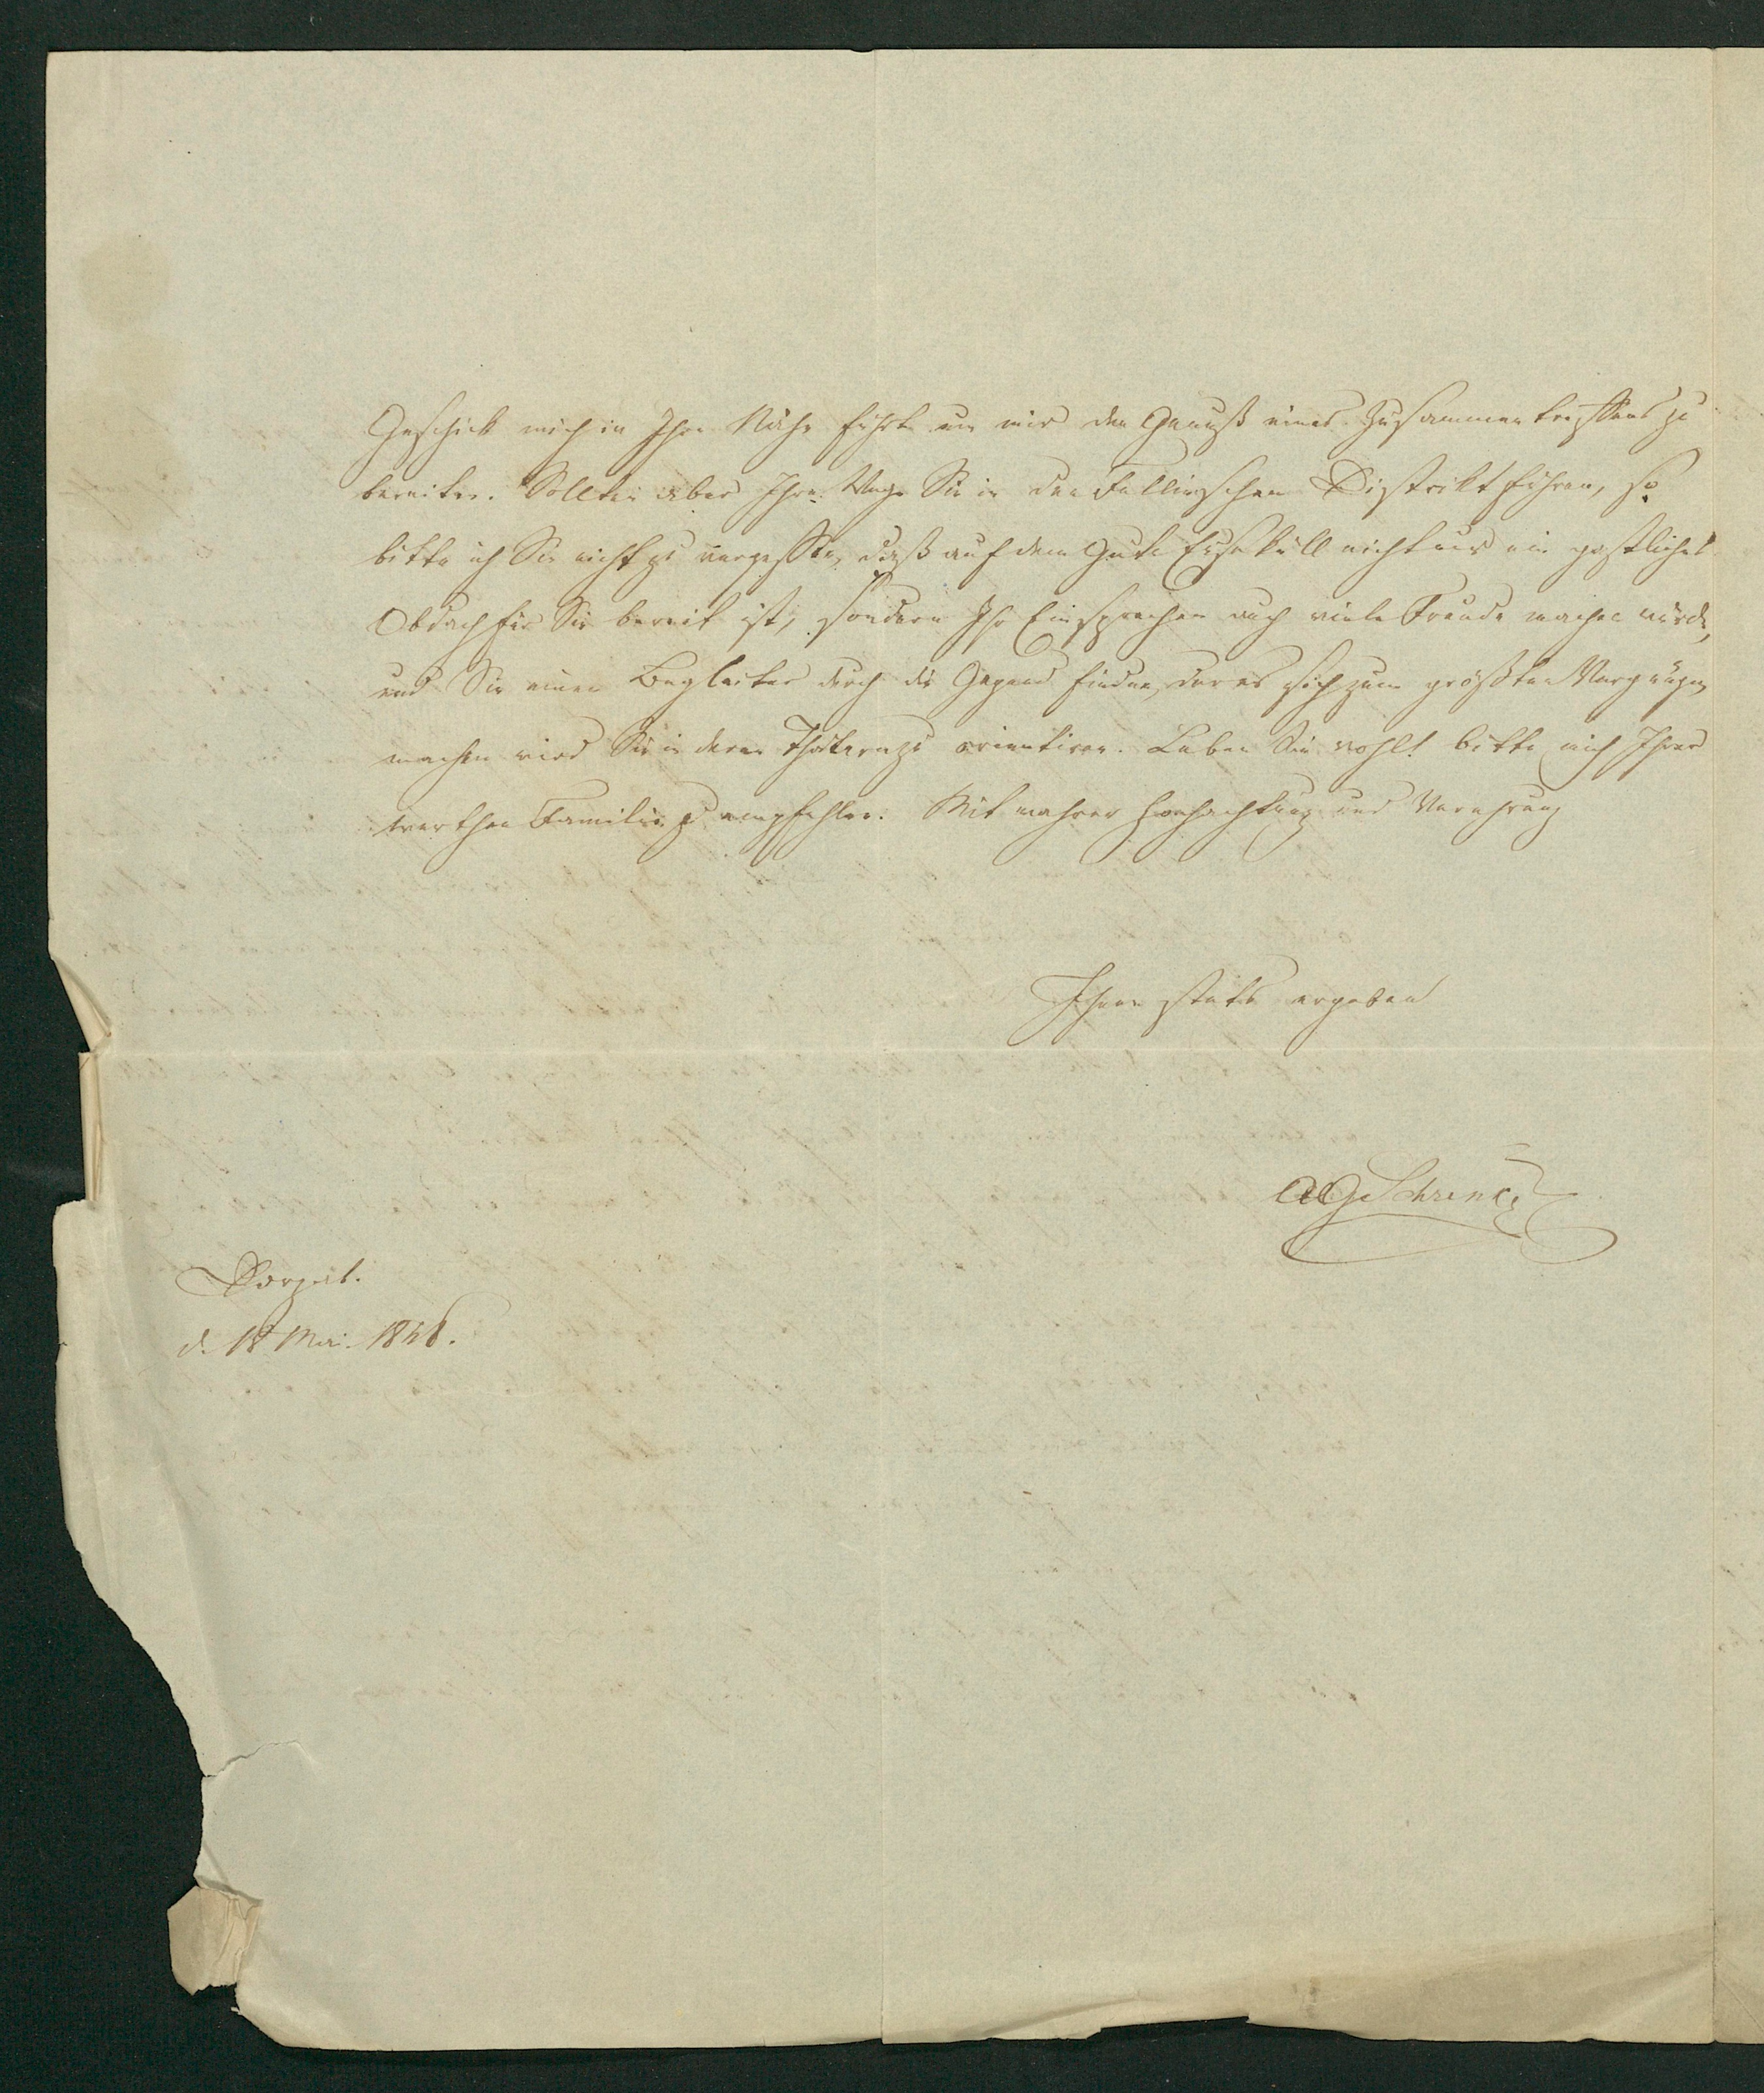 Geschick mich in Ihre Nähe führte um mir den Genuß eines Zusammentreffens zu
bereiten. Sollten aber Ihre Wege Sie in den Fellinschen Distrikt führen, so
bitte ich Sie nicht zu vergessen, daß auf dem Gute Euseküll nicht nur ein gastliches
Obdach für Sie bereit ist, sondern Ihr Einsprechen auch viele Freude machen würde,
und Sie einen Begleiter durch die Gegend finden, der es sich zum größten Vergnügen
machen wird Sie in deren zu orientiren. Leben Sie wohl! bitte mich Ihrer
werthen Familie zu empfehlen. Mit wahrer Hochachtung und Verehrung
Ihnen stets ergeben
AG Schrenk
Dorpat.
d. 18 Mai.